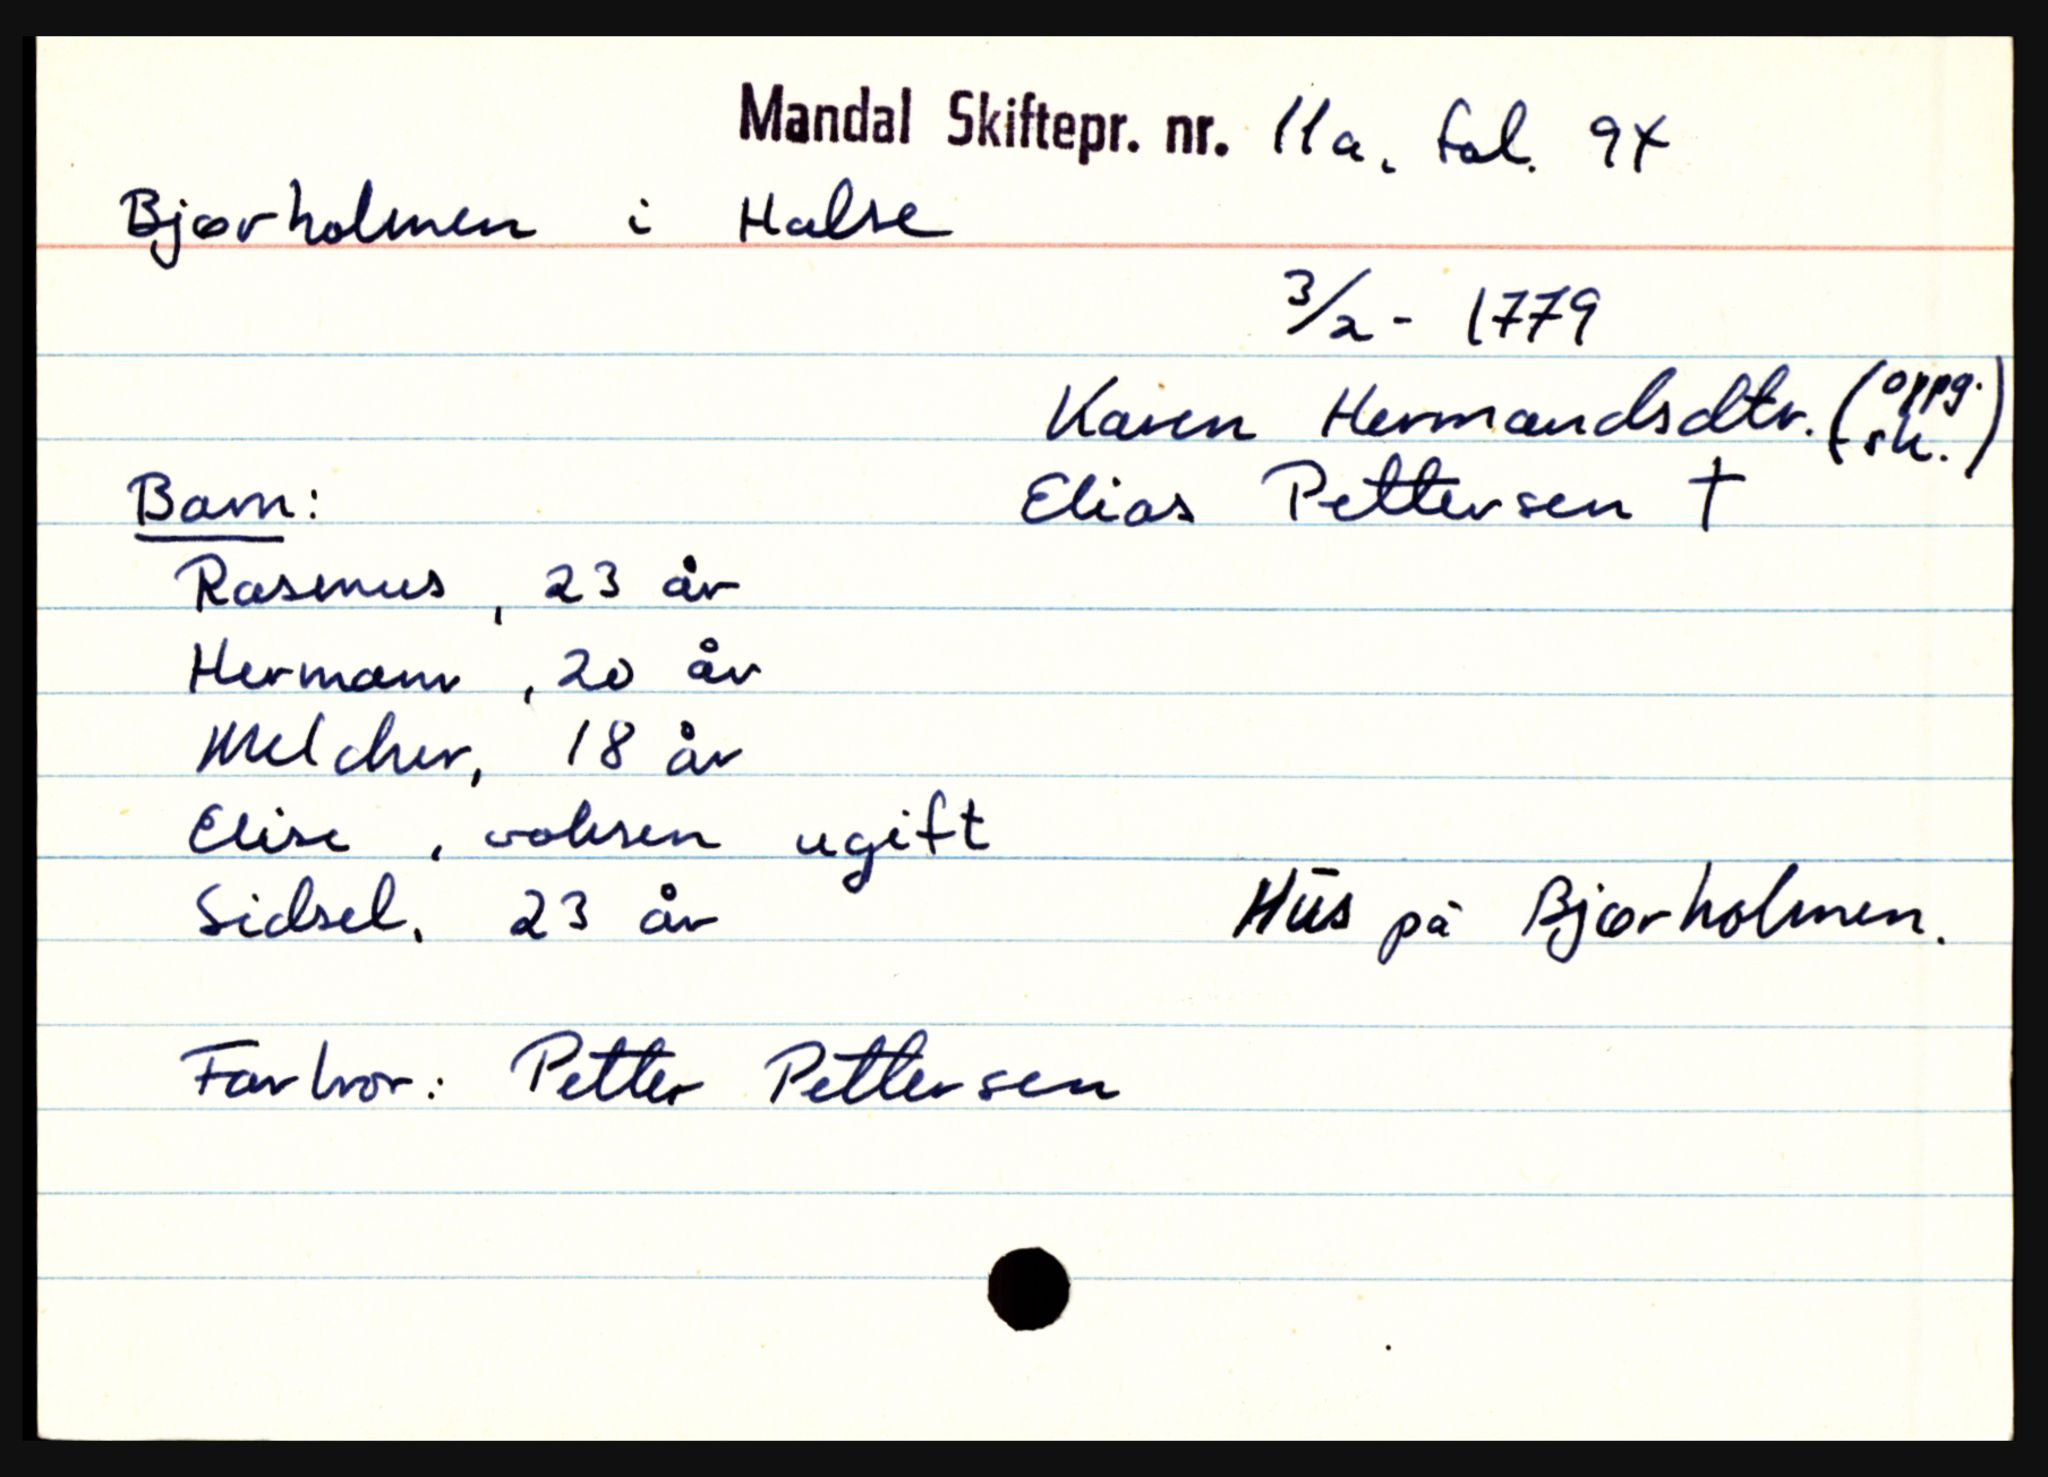 Mandal Skiftepr. nr. 11a, fol. 94
Bjørholmen i Halse
3/2 - 1779
Karen Hermandsdtr. (oppg. sk.)
Elias Pettersen †
Barn:
Rasmus, 23 år
Hermann, 20 år
Melcher, 18 år
Elise, voksen ugift
Sidsel, 23 år
Hus på Bjørholmen.
Farbror: Petter Pettersen